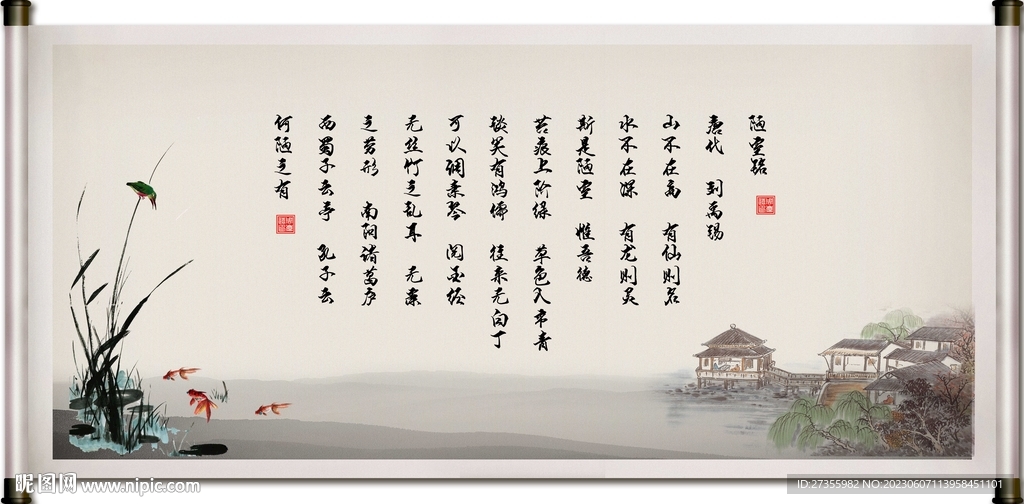 陋室铭
唐代 刘禹锡
山不在高 有仙则名
水不在深 有龙则灵
斯是陋室 惟吾德
苔痕上阶绿 草色入帘青
谈笑有鸿儒 往来无白丁
可以调素琴 阅金经
无丝竹之乱耳 无案
之劳形 南阳诸葛庐
西蜀子云亭 孔子云
何陋之有
昵图网 www.nipic.com
ID:27355982 NO:20230607113958451101